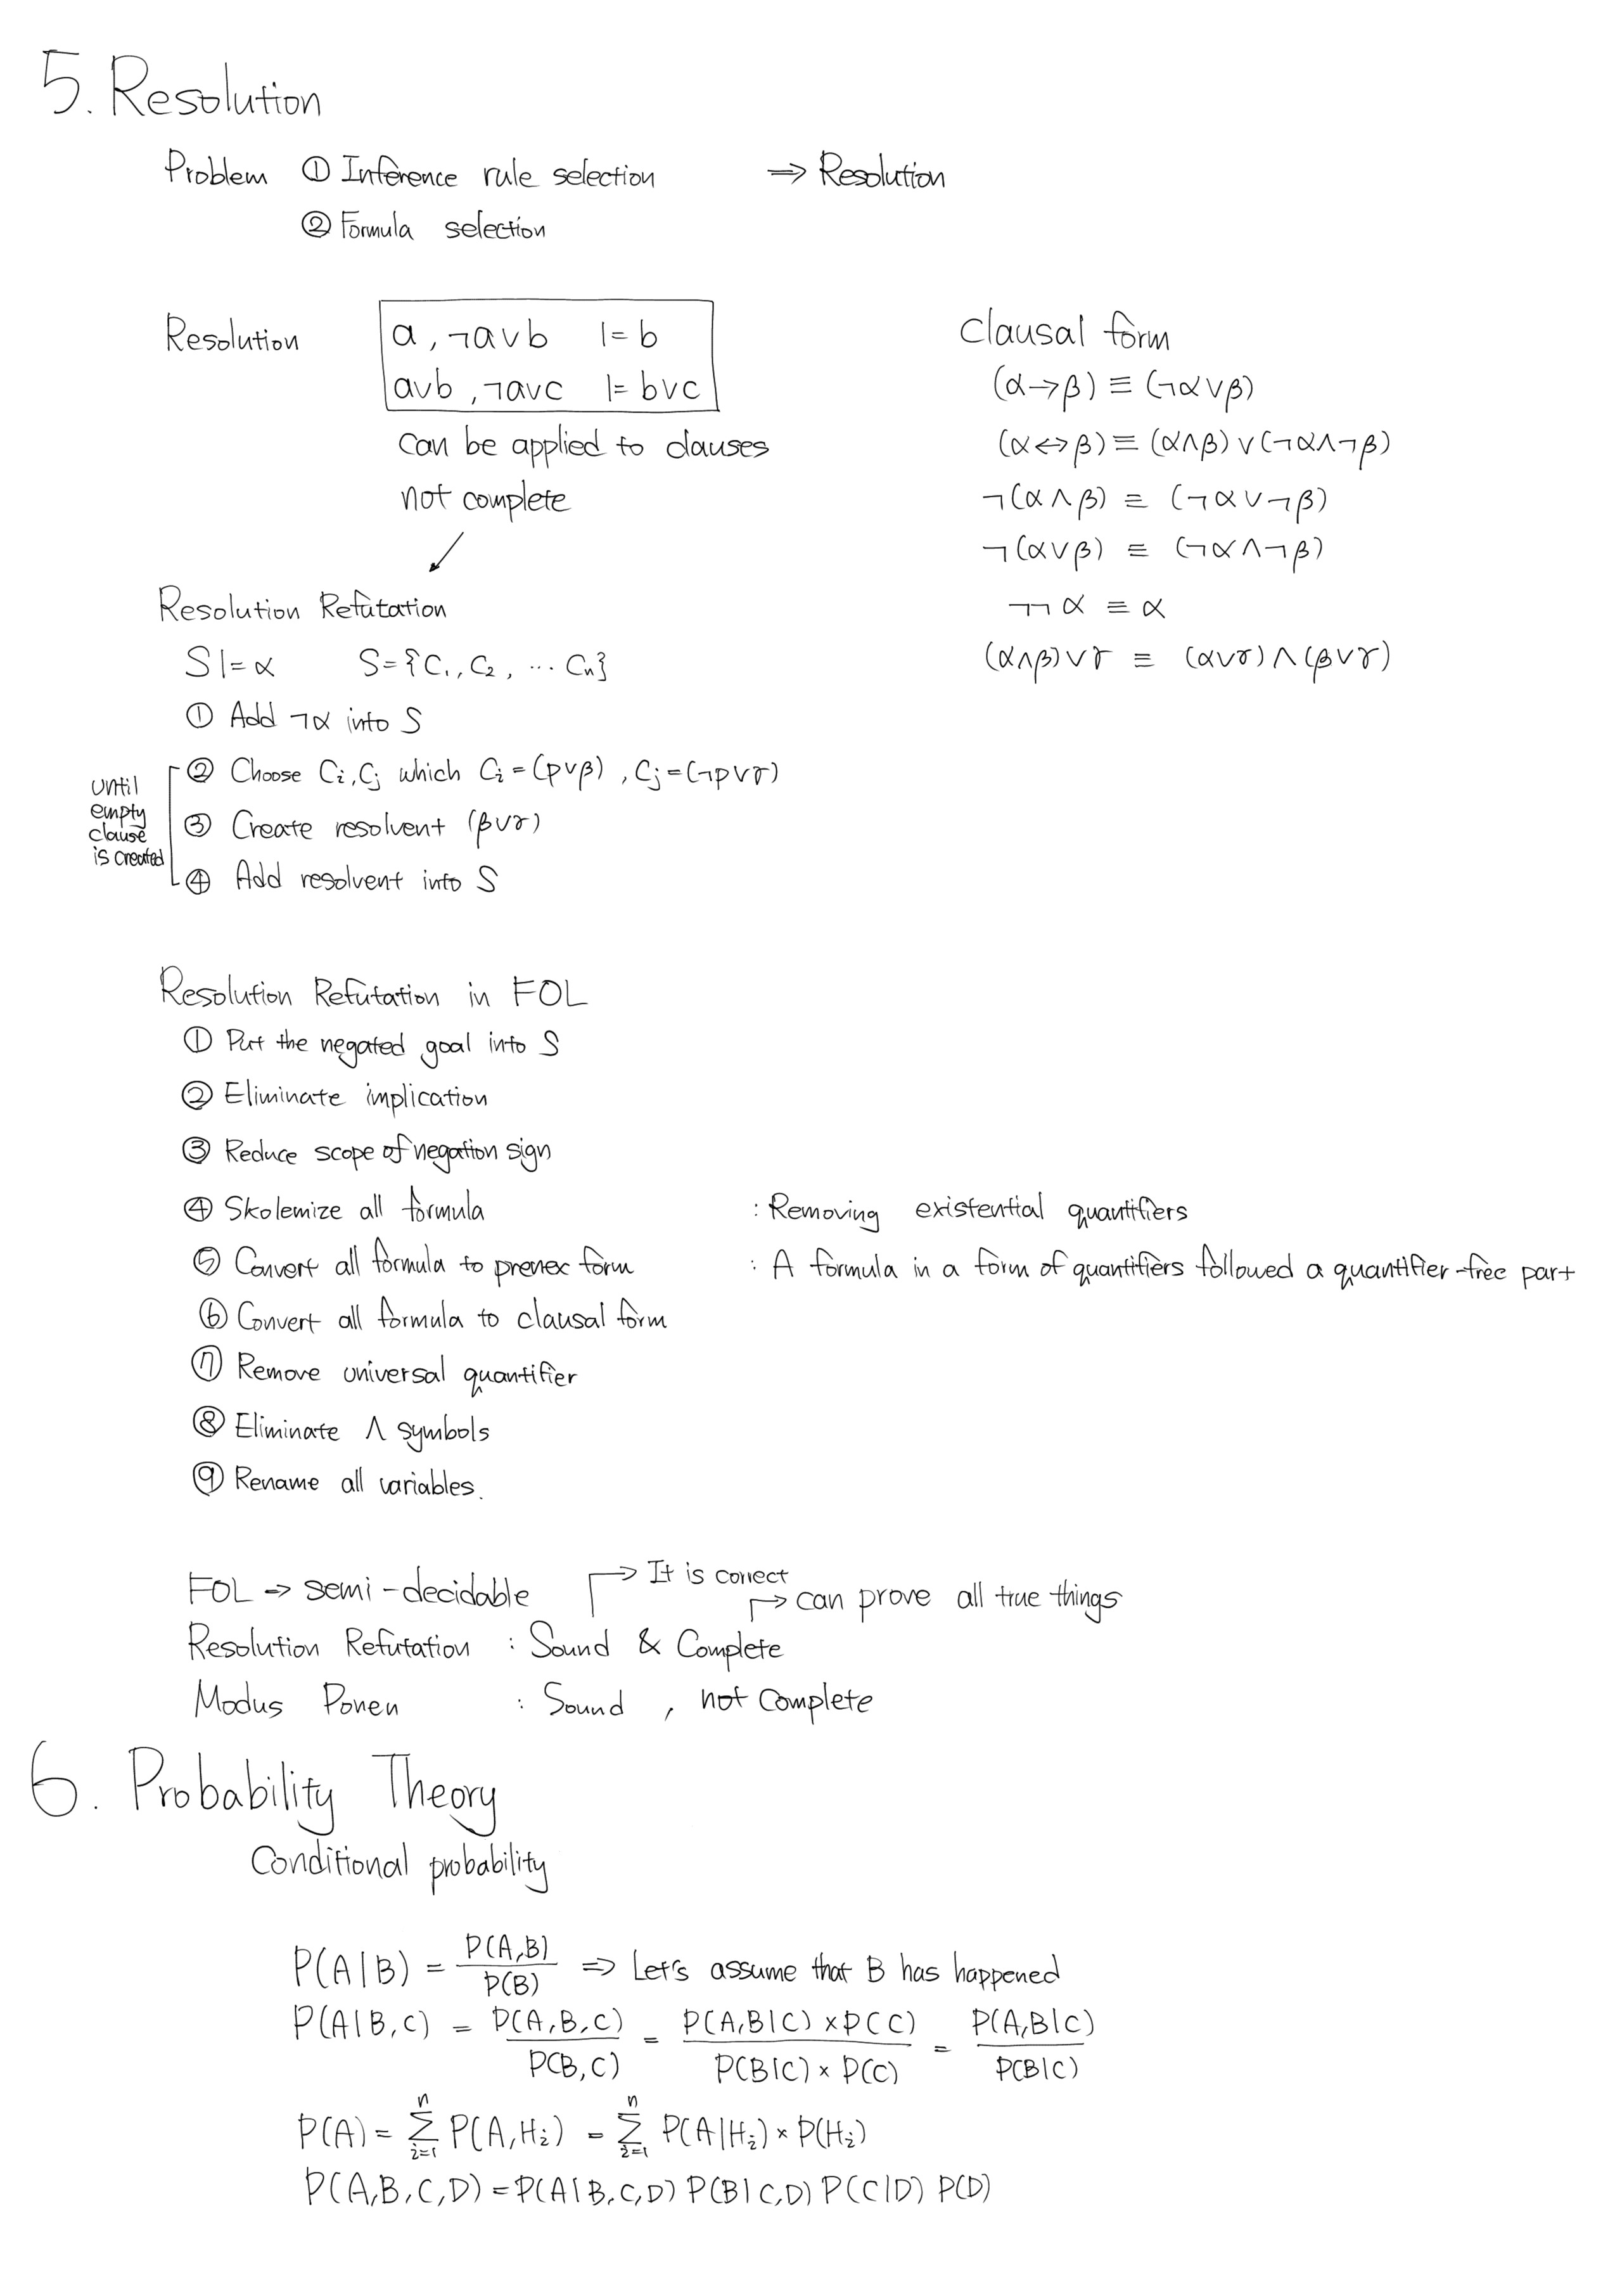 5. Resolution
Problem ① Inference rule selection ⇒ Resolution
② Formula selection
Resolution a, ¬a∨b |= b
a∨b, ¬a∨c |= b∨c
can be applied to clauses
not complete
Clausal form
(α→β) ≡ (¬α∨β)
(α↔β) ≡ (α∧β)∨(¬α∧¬β)
¬(α∧β) ≡ (¬α∨¬β)
¬(α∨β) ≡ (¬α∧¬β)
¬¬α ≡ α
(α∧β)∨γ ≡ (α∨γ)∧(β∨γ)
Resolution Refutation
S |= α S={C₁, C₂, ... Cn}
① Add ¬α into S
② Choose Ci, Cj which Ci = (p∨β), Cj = (¬p∨γ)
③ Create resolvent (β∨γ)
④ Add resolvent into S
until
empty
clause
is created
Resolution Refutation in FOL
① Put the negated goal into S
② Eliminate implication
③ Reduce scope of negation sign
④ Skolemize all formula : Removing existential quantifiers
⑤ Convert all formula to prenex form : A formula in a form of quantifiers followed a quantifier-free part
⑥ Convert all formula to clausal form
⑦ Remove universal quantifier
⑧ Eliminate ∧ symbols
⑨ Rename all variables.
FOL → semi-decidable → It is correct
→ can prove all true things
Resolution Refutation : Sound & Complete
Modus Ponen : Sound, not complete
6. Probability Theory
Conditional probability
P(A|B) = P(A,B) / P(B) ⇒ Let's assume that B has happened
P(A|B,C) = P(A,B,C) / P(B,C) = P(A,B|C) × P(C) / P(B|C) × P(C) = P(A,B|C) / P(B|C)
P(A) = Σ i=1 n P(A,Hi) = Σ i=1 n P(A|Hi) × P(Hi)
P(A,B,C,D) = P(A|B,C,D) P(B|C,D) P(C|D) P(D)